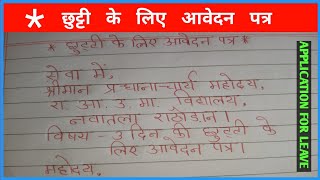 * छुट्टी के लिए आवेदन पत्र
* छुट्टी के लिए आवेदन पत्र *
सेवा में,
श्रीमान प्रधानाचार्य महोदय,
रा. आ. उ. मा. विद्यालय,
नवातला राठौडान।
विषय - 3 दिन की छुट्टी के
लिए आवेदन पत्र।
महोदय,
APPLICATION FOR LEAVE